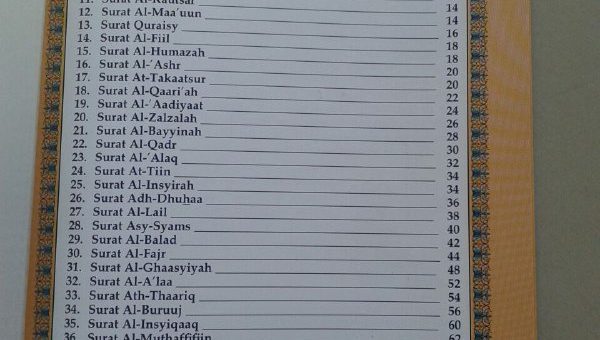 11. Surat Al-Kautsar 14
12. Surat Al-Maa'uun 14
13. Surat Quraisy 16
14. Surat Al-Fiil 18
15. Surat Al-Humazah 18
16. Surat Al-'Ashr 20
17. Surat At-Takaatsur 20
18. Surat Al-Qaari'ah 22
19. Surat Al-'Aadiyaat 24
20. Surat Al-Zalzalah 26
21. Surat Al-Bayyinah 28
22. Surat Al-Qadr 30
23. Surat Al-'Alaq 32
24. Surat At-Tiin 34
25. Surat Al-Insyirah 34
26. Surat Adh-Dhuhaa 36
27. Surat Al-Lail 38
28. Surat Asy-Syams 40
29. Surat Al-Balad 42
30. Surat Al-Fajr 44
31. Surat Al-Ghaasyiyah 48
32. Surat Al-A'laa 52
33. Surat Ath-Thaariq 54
34. Surat Al-Buruuj 56
35. Surat Al-Insyiqaaq 60
36. Surat Al-Muthaffifiin 62